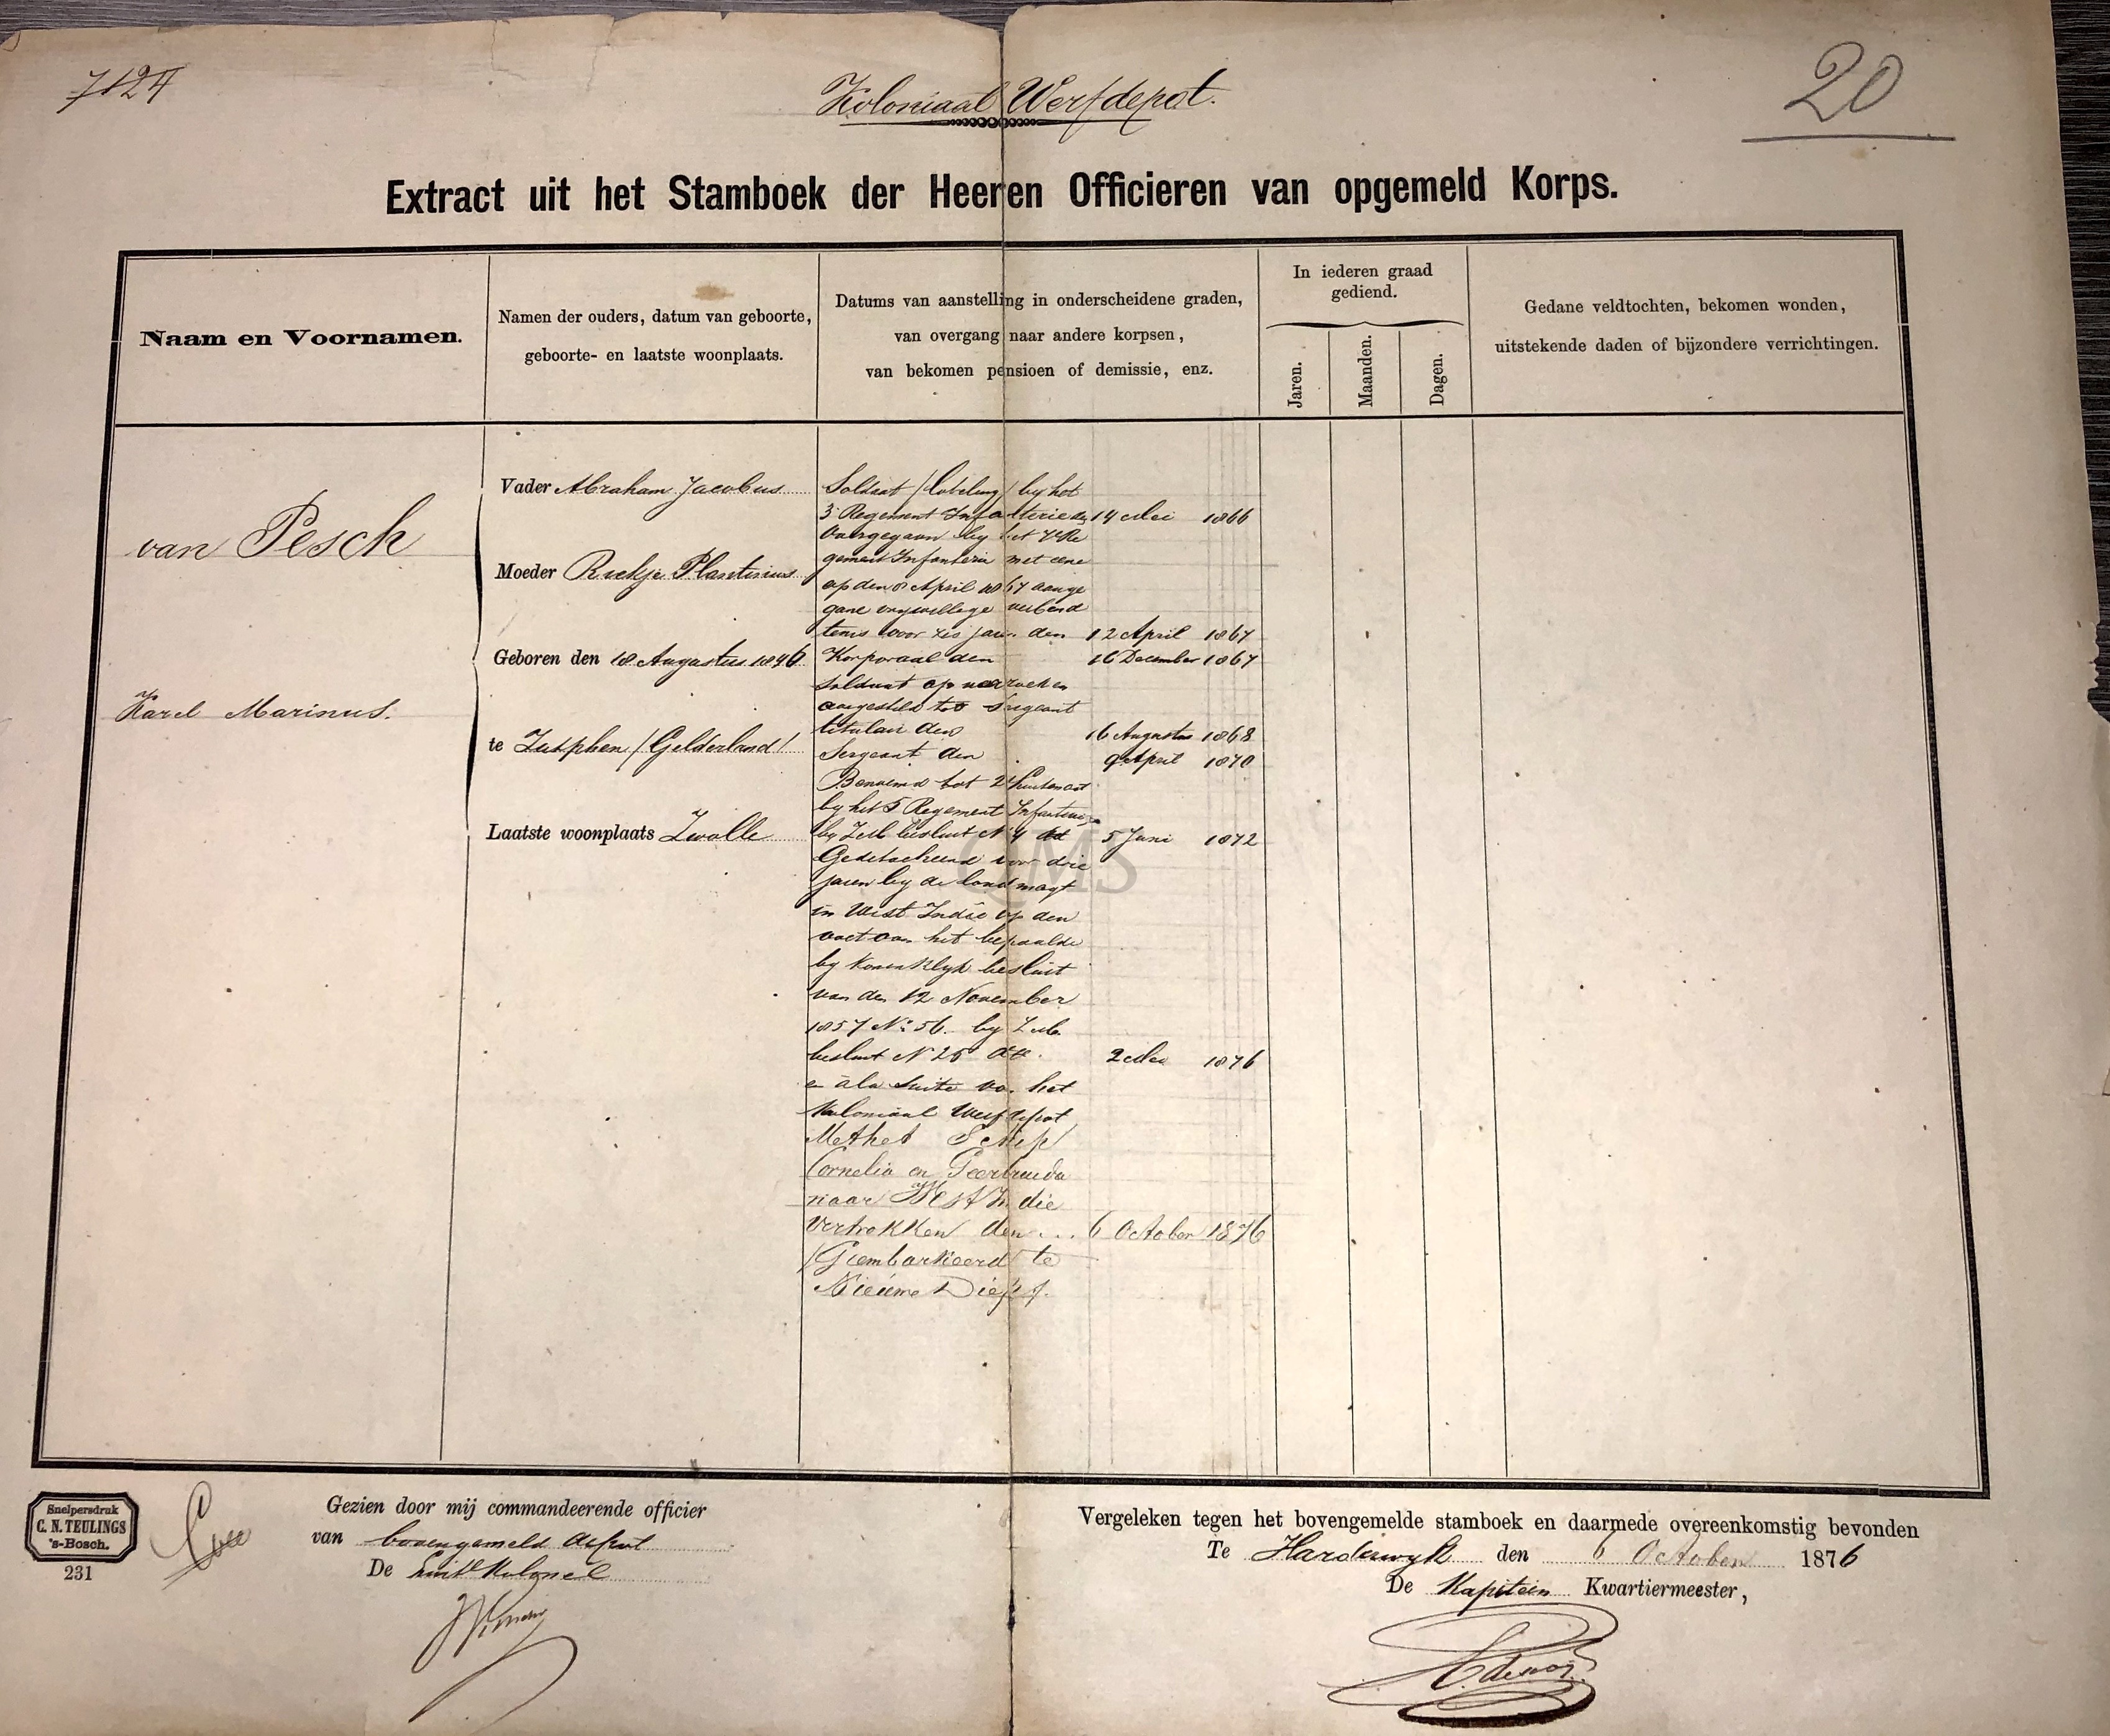 7124
Koloniaal Werfdepot.
20
Extract uit het Stamboek der Heeren Officieren van opgemeld Korps.
Naam en Voornamen.
Namen der ouders, datum van geboorte,
geboorte- en laatste woonplaats.
Datums van aanstelling in onderscheidene graden,
van overgang naar andere korpsen,
van bekomen pensioen of demissie, enz.
In iederen graad
gediend.
Jaren.
Maanden.
Dagen.
Gedane veldtochten, bekomen wonden,
uitstekende daden of bijzondere verrichtingen.
van Pesch
Karel Marinus.
Vader Abraham Jacobus
Moeder Plantinus
Geboren den 18 Augustus 1846
te Zutphen (Gelderland)
Laatste woonplaats Zwolle
Soldaat (loteling) by het
3e Regement Infanterie den 14 Mei 1866
Overgegaan by het Re
gement Infanterie met eene
op den 8 April 1867 aange
gane vrywillige verbind
tenis voor zes jaren den 12 April 1867
Korporaal den 16 December 1867
Soldaat op verzoek en
aangesteld tot Sergeant
titulair den 16 Augustus 1868
Sergeant den 9 April 1870
Benoemd tot 2e Luitenant
by het 5 Regement Infanterie
by Zeb besluit No 4 dd 5 Juni 1872
Gedetacheerd voor drie
jaren by de landmagt
in West Indie op den
voet van het bepaalde
by Koninklyk besluit
van den 12 November
1857 No 56. by Zeb
besluit N 25 dd. 2 Mei 1876
en à la Suite van het
Koloniaal Werfdepot
Met het Schip
Cornelia en Geertruida
naar West Indie
Vertrokken den ... 6 October 1876
(Geembarkeerd te
Nieuwe Diep).
QMS
Snelpersdruk
C. N. TEULINGS
's-Bosch.
231
Gezien door mij commandeerende officier
van bovengemeld depot
De Luit Kolonel
Vergeleken tegen het bovengemelde stamboek en daarmede overeenkomstig bevonden
Te Harderwyk den 6 October 1876
De Kapitein Kwartiermeester,